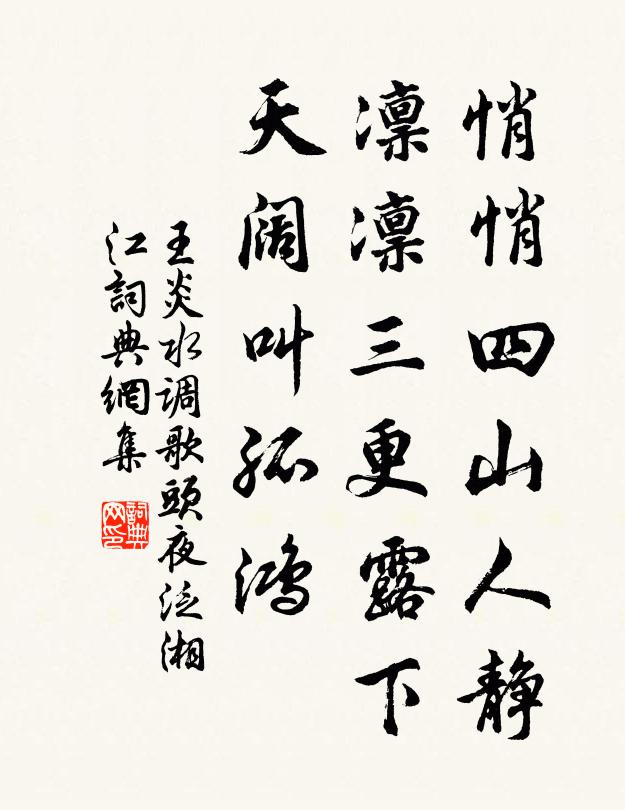 悄悄四山人静
凛凛三更露下
天阔叫孤鸿
王炎水调歌頭夜泛湘
江詞典網集
詞典
网印